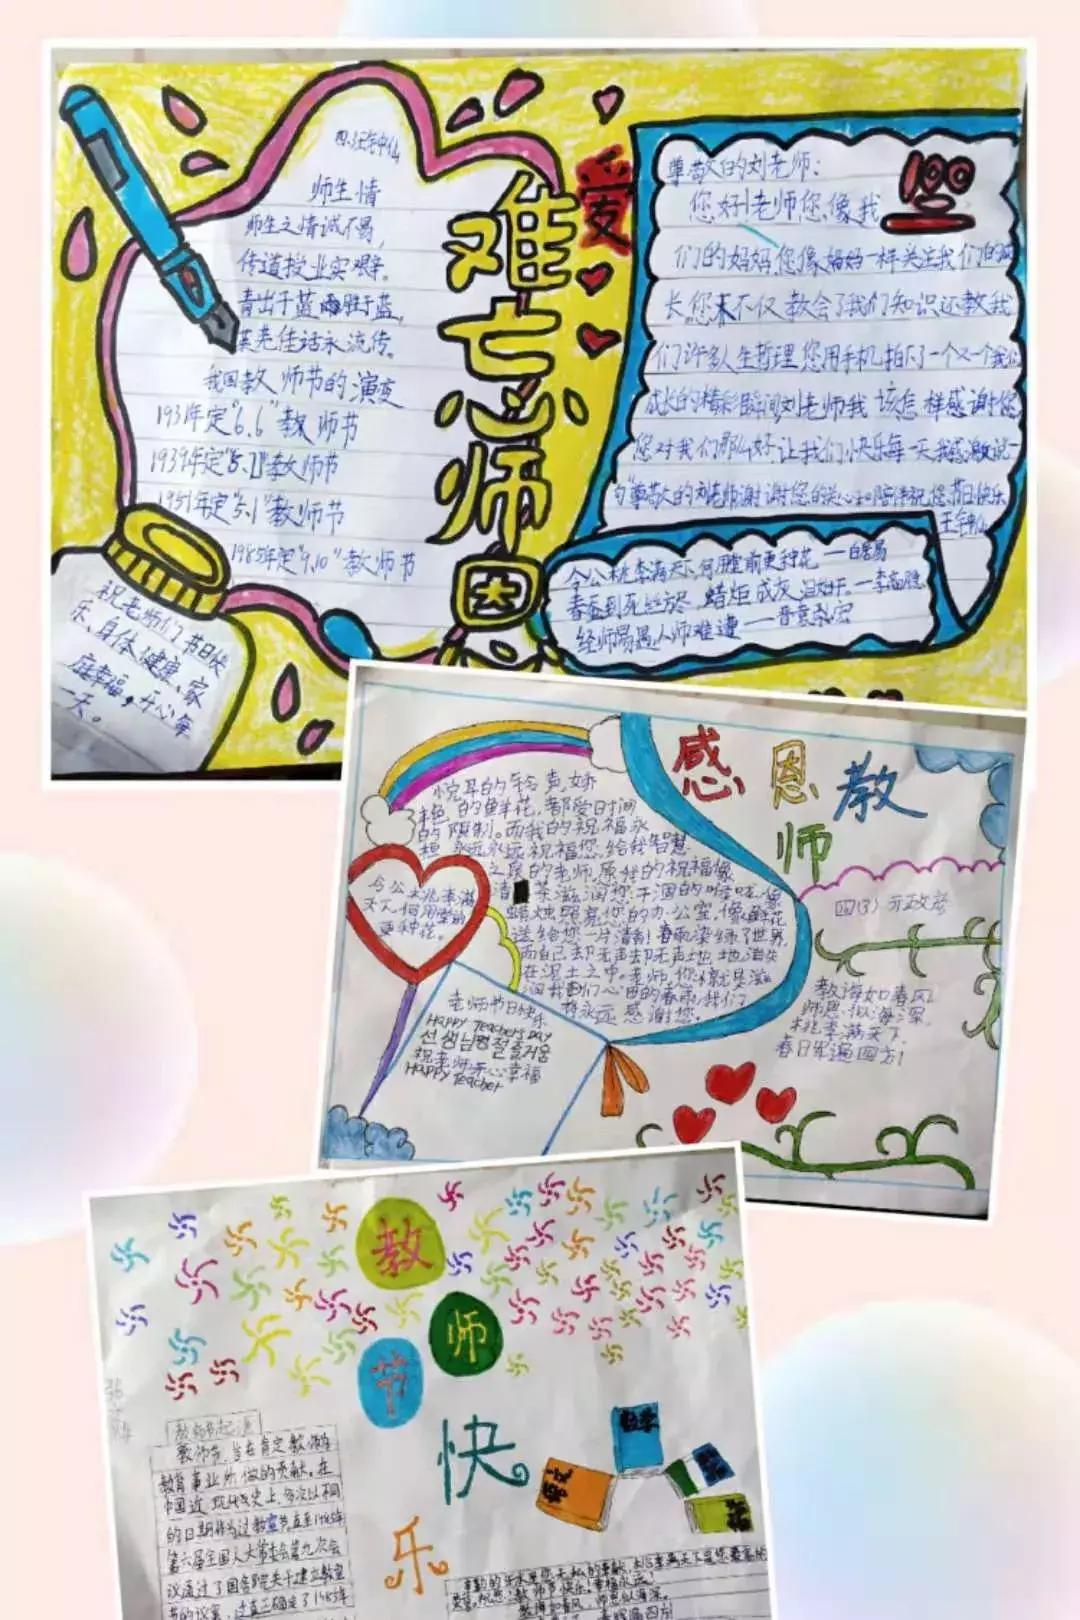 师生情
师生之情诚不易,
传道授业实艰辛。
青出于蓝而胜于蓝,
佳话永流传。
我国教师节的演变
1931年定“6.6”教师节
1939年定“5.1”教师节
1951年定“5.1”教师节
1985年定“9.10”教师节
祝老师们节日快
乐、身体健康、家
庭幸福,开心每
一天。
难忘师恩
爱
100
尊敬的刘老师:
您好!老师您像我
们的妈妈,您像妈妈一样关注我们的成
长.您不仅教会了我们知识还教我
们许多人生哲理您用手机拍下一个又一个我们
成长的精彩瞬间刘老师我该怎样感谢您
您对我们那么好让我们快乐每一天我感激说一
句“尊敬的刘老师谢谢您的关心和陪伴祝您节日快乐
今公桃李满天下,何用堂前更种花——白居易
春蚕到死丝方尽,蜡炬成灰泪始干。—李商隐
经师易遇,人师难遭——
感恩教师
悦耳的铃声,娇
艳的鲜花,都受时间
的限制。而我的祝福永
恒,永远永远祝福您,给我智慧
之泉的老师,愿我的祝福像
清茶滋润您干涸的喉咙,像
蜡烛照亮您的办公室,像鲜花
送给您一片清香!春雨染绿了世界,
而自己却无声却无声地地消失
在泥土之中。老师,您就是滋
润我们心田的春雨,我们
将永远感谢您.
今公桃李满
天下,何用堂前
更种花。
老师节日快乐
Happy Teachers Day
선생님명절즐거움
祝老师开心幸福
Happy Teacher
四(3)
教诲如春风
师恩似海深
桃李满天下
春日 遍四方!
教
师
节
快
乐
教师节起源
教师节,旨在肯定教师为
教育事业所做的贡献。在
中国近现代史上,多次以不同
的日期作为过教师节.直至1985年
第六届全国人大常委会第九次会
议通过了国务院关于建立教师
节的议案,
数学
语文